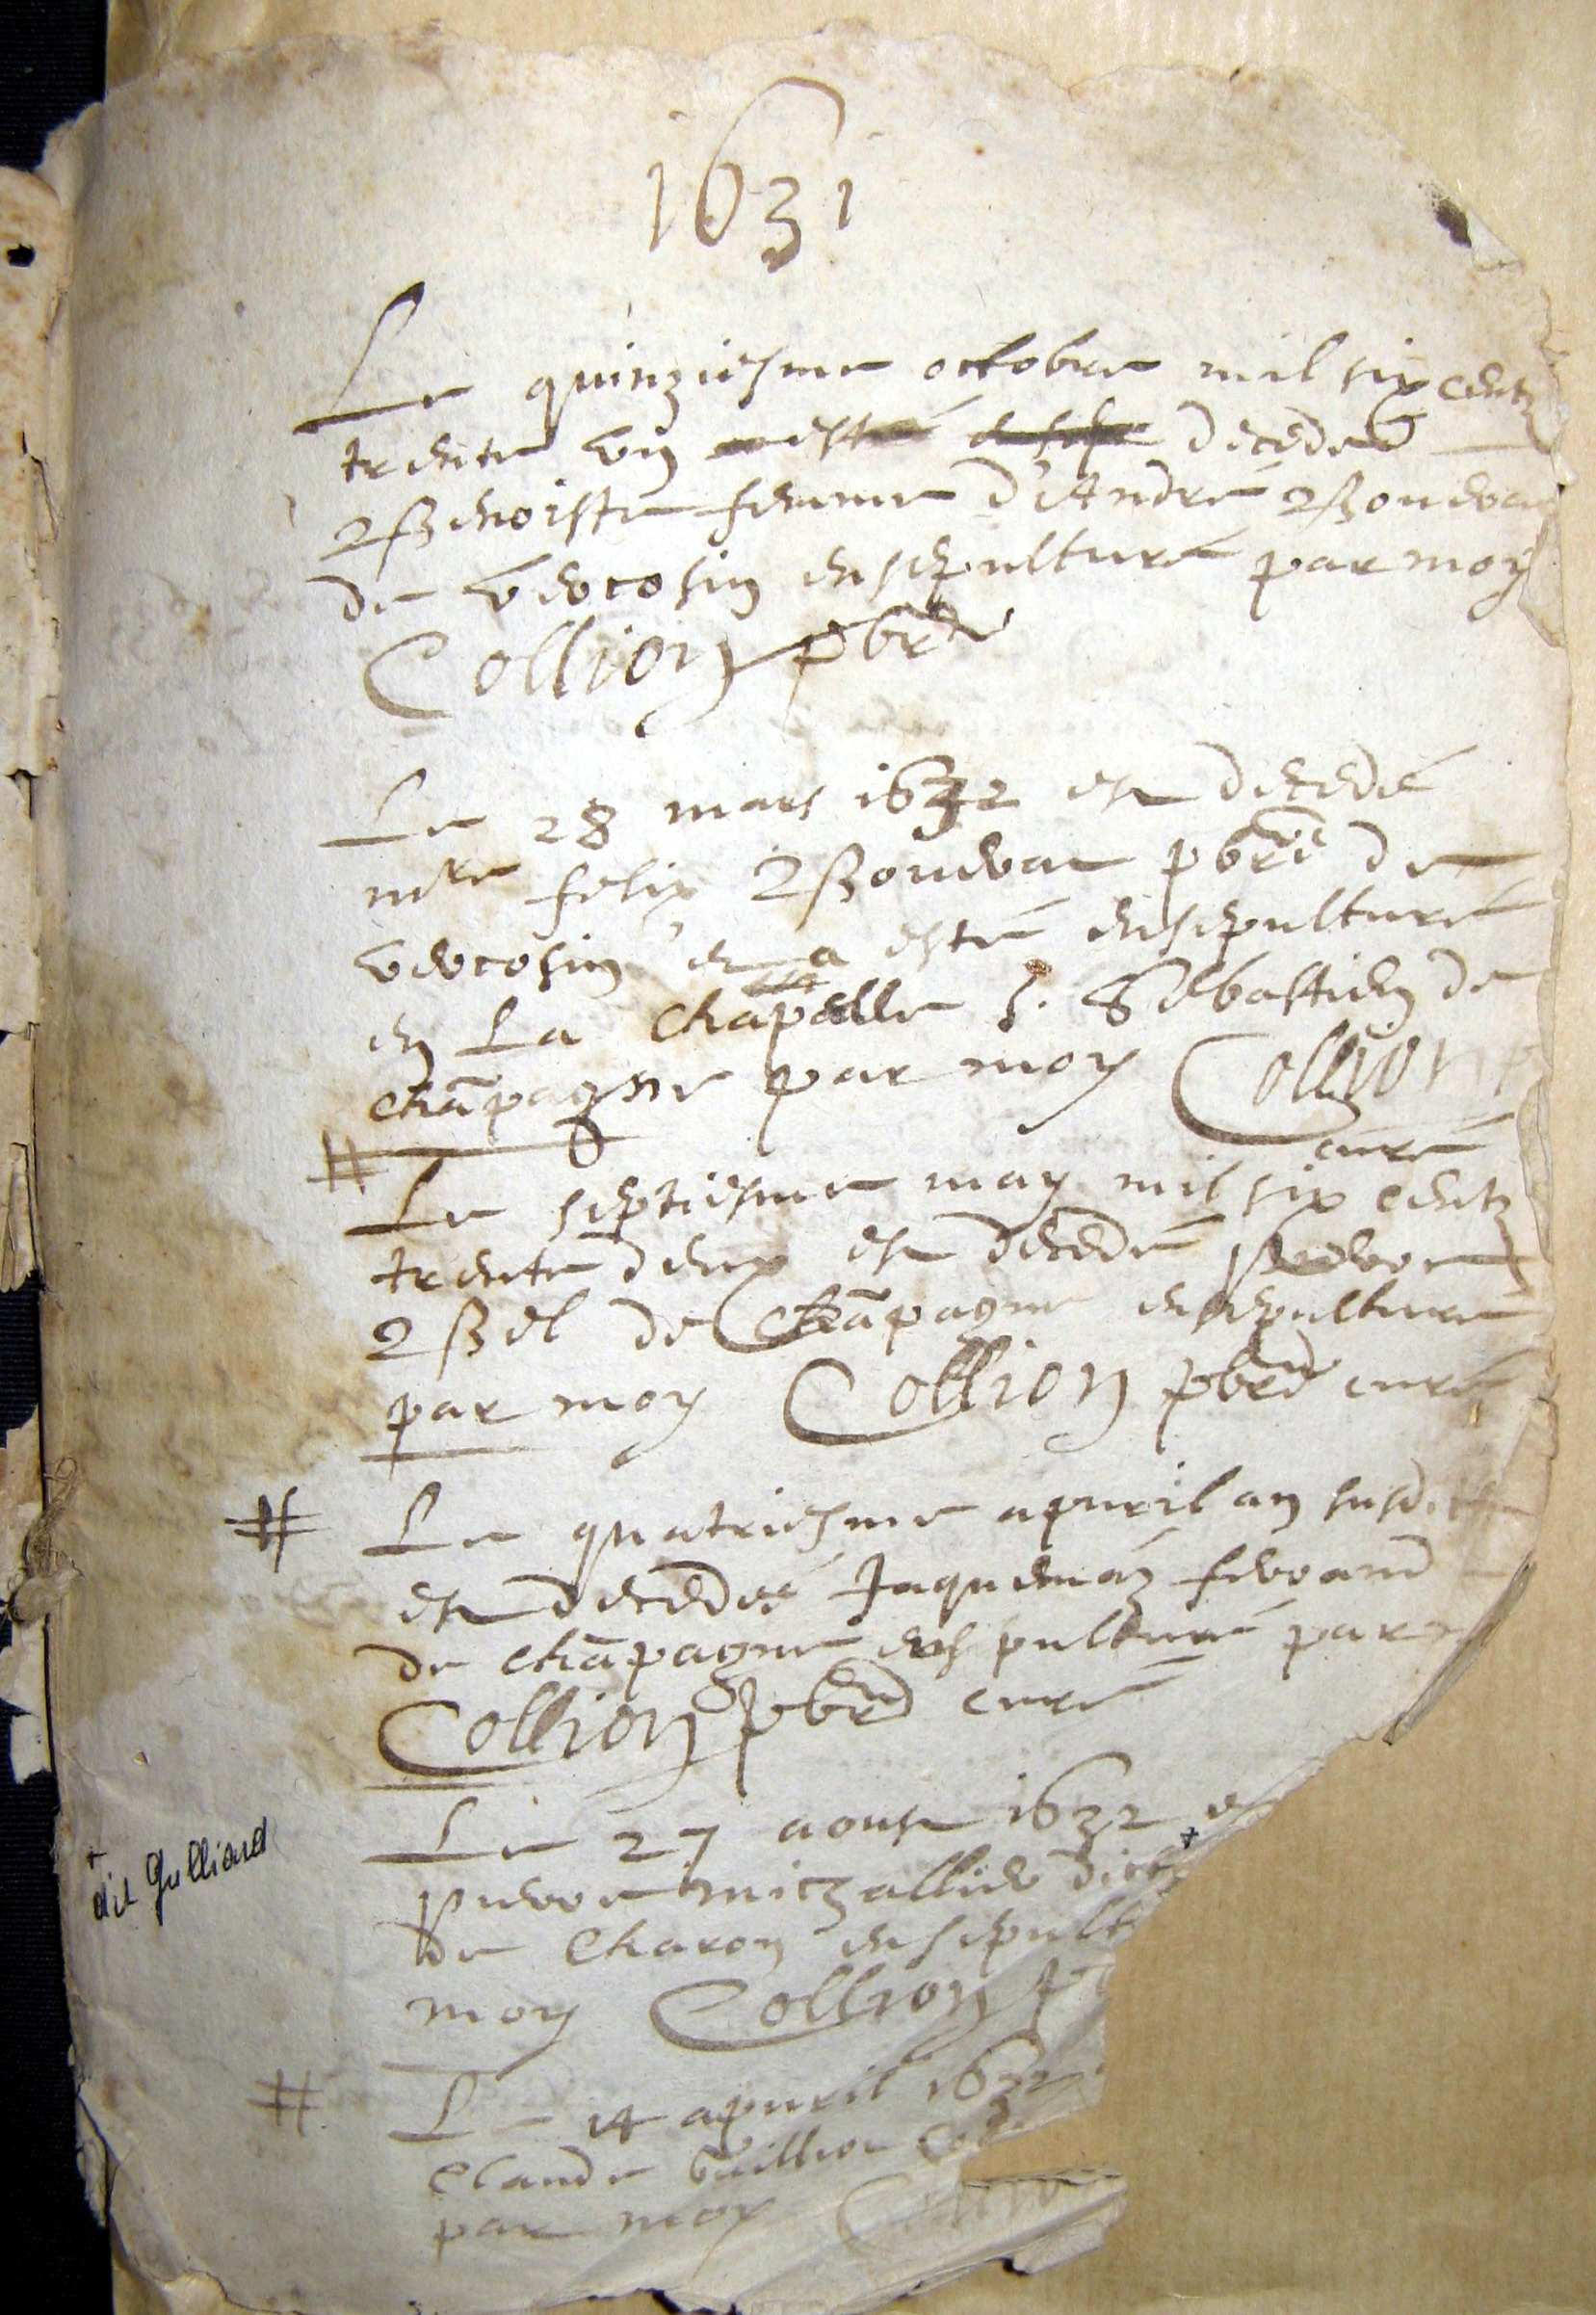 1631
Le quinziesme octobre mil six centz
trente un decedee
Benoiste femme d'André Bonvar
de Vercosin ensepulturé par moy
Collion pbre
Le 28 mars 1632 est decedé
mre felix Bonvar pbre de
Vercosin et a esté ensepulturé
en La chapelle S. Sebastien de
chāpagne par moy Collion
curé
# Le septiesme may mil six centz
trente deux est decedé pierre
Bel de Chāpagne ensepulturé
par moy Collion pbre curé
# Le quatriesme apvril an susdict
est decedé Jaquemaz
de chāpagne par
Collion pbre curé
Le 27 aoust 1632
pierre michallier dict
+ dit Gulliand
de Charon ensepult
moy Collion
# Le 14 apvril 1632
Claude
par moy